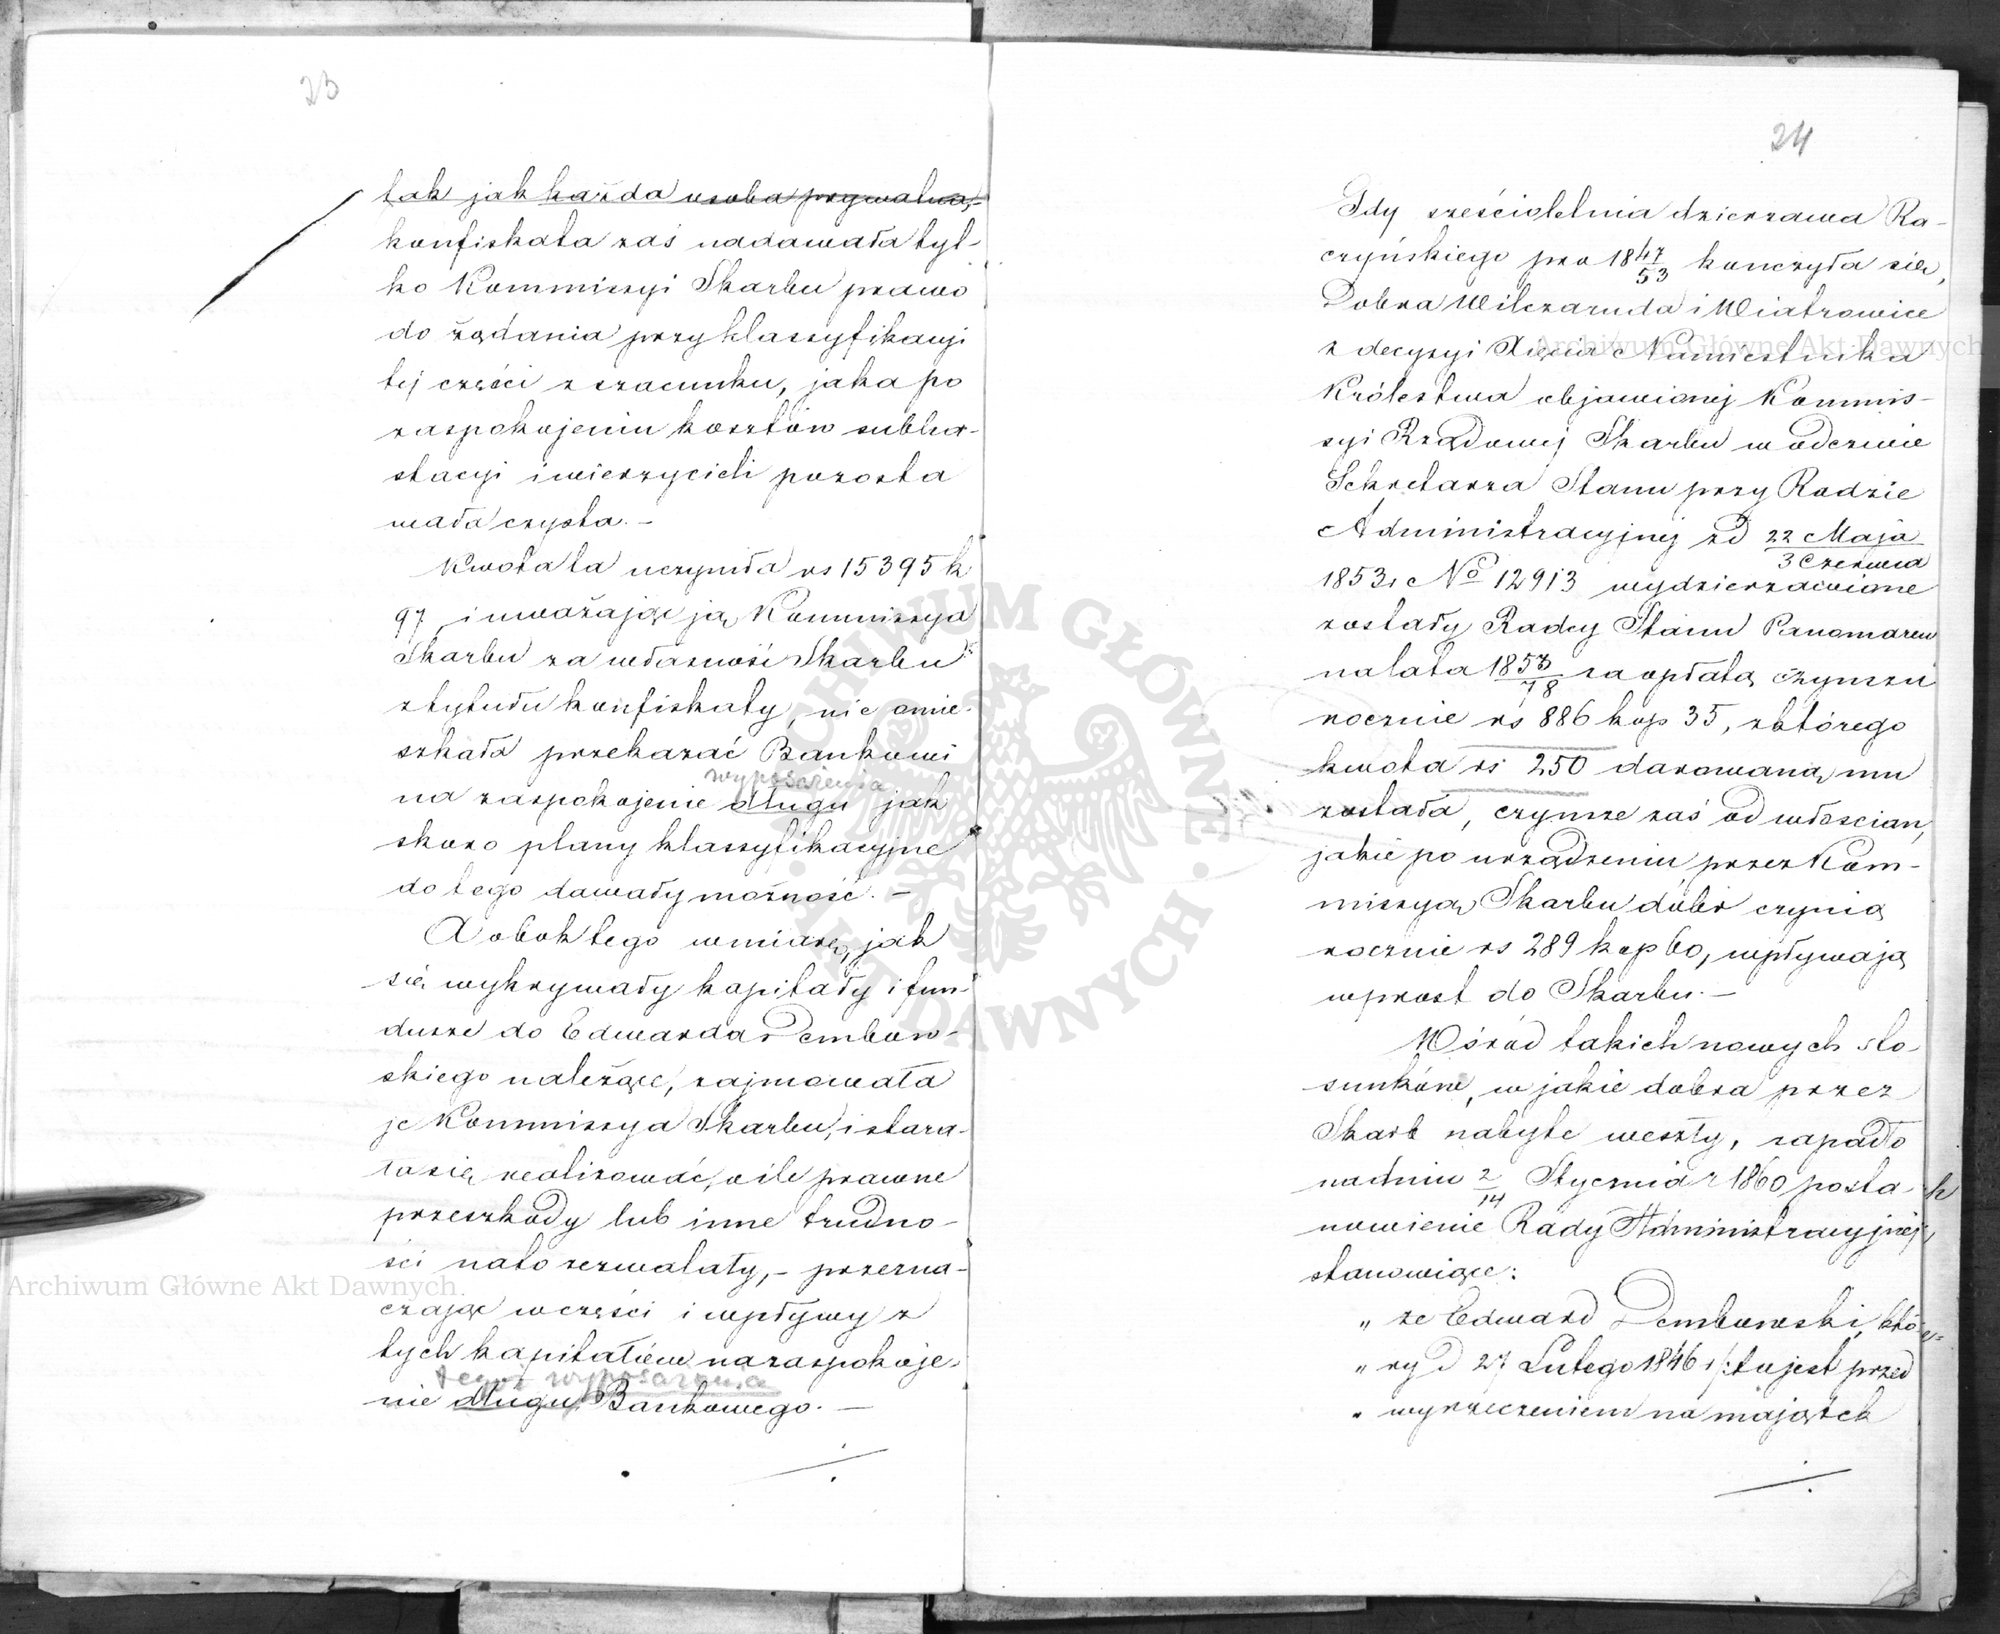 23
tak jak każda osoba prywatna,-
konfiskata zaś nadawała tyl-
ko Kommissyi Skarbu prawo
do żądania przy klassyfikacyi
tej części z szacunku, jaka po
zaspokojeniu kosztów subha-
stacyi i wierzycieli pozosta
wała czysta. -
Kwota ta uczyniła rs 15395 k
97, i uważając ją Kommissya
Skarbu za własność Skarbu
z tytułu konfiskaty, nie omie-
szkała przekazać Bankowi
wyposażenia
na zaspokojenie długu jak
skoro plany klassyfikacyjne
do tego dawały możność. -
A obok tego w miarę, jak
się wykrywały kapitały i fun-
dusze do Edwarda Dembow-
skiego należące, zajmowała
je Kommissya Skarbu, i stara-
ła się realizować, o ile prawne
przeszkody lub inne trudno-
ści na to zezwalały, - przezna-
czając w części i wpływy z
tych kapitałów na zaspokoje-
tegoż wyposażenia
nie długu Bankowego. -
24
Gdy sześcioletnia dzierzawa Ra-
czyńskiego pro 1847/53 konczyła się,
Dobra Wilczaruda i Wiatrowice
z decyzyi Xięcia Namiestnika
Królestwa objawionej Kommis-
syi Rządowej Skarbu w odezwie
Sekretarza Stanu przy Radzie
Administracyjnej z d 22 Maja/3 Czerwca
1853 r No 12913 wydzierzawione
zostały Radcy Stanu Panomarew
na lata 1853/78 za opłatą czynszu
rocznie rs 886 kop 35, z którego
kwota rs 250 darowaną mu
została, czynsze zaś od włoscian,
jakie po urządzeniu przez Kom-
missyą Skarbu dóbr czynią
rocznie rs 289 kop 60, wpływają
wprost do Skarbu. -
Wśród takich nowych sto-
sunków, w jakie dobra przez
Skarb nabyte weszły, zapadło
na dniu 2/14 Stycznia r 1860 posta-
nowienie Rady Administracyjnej,
stanowiące:
„ że Edward Dembowski, któ-
„ ry d 27 Lutego 1846 r /: to jest przed
„ wyrzeczeniem na majątek
Archiwum Główne Akt Dawnych
Archiwum Główne Akt Dawnych.
ARCHIWUM GŁÓWNE AKT DAWNYCH